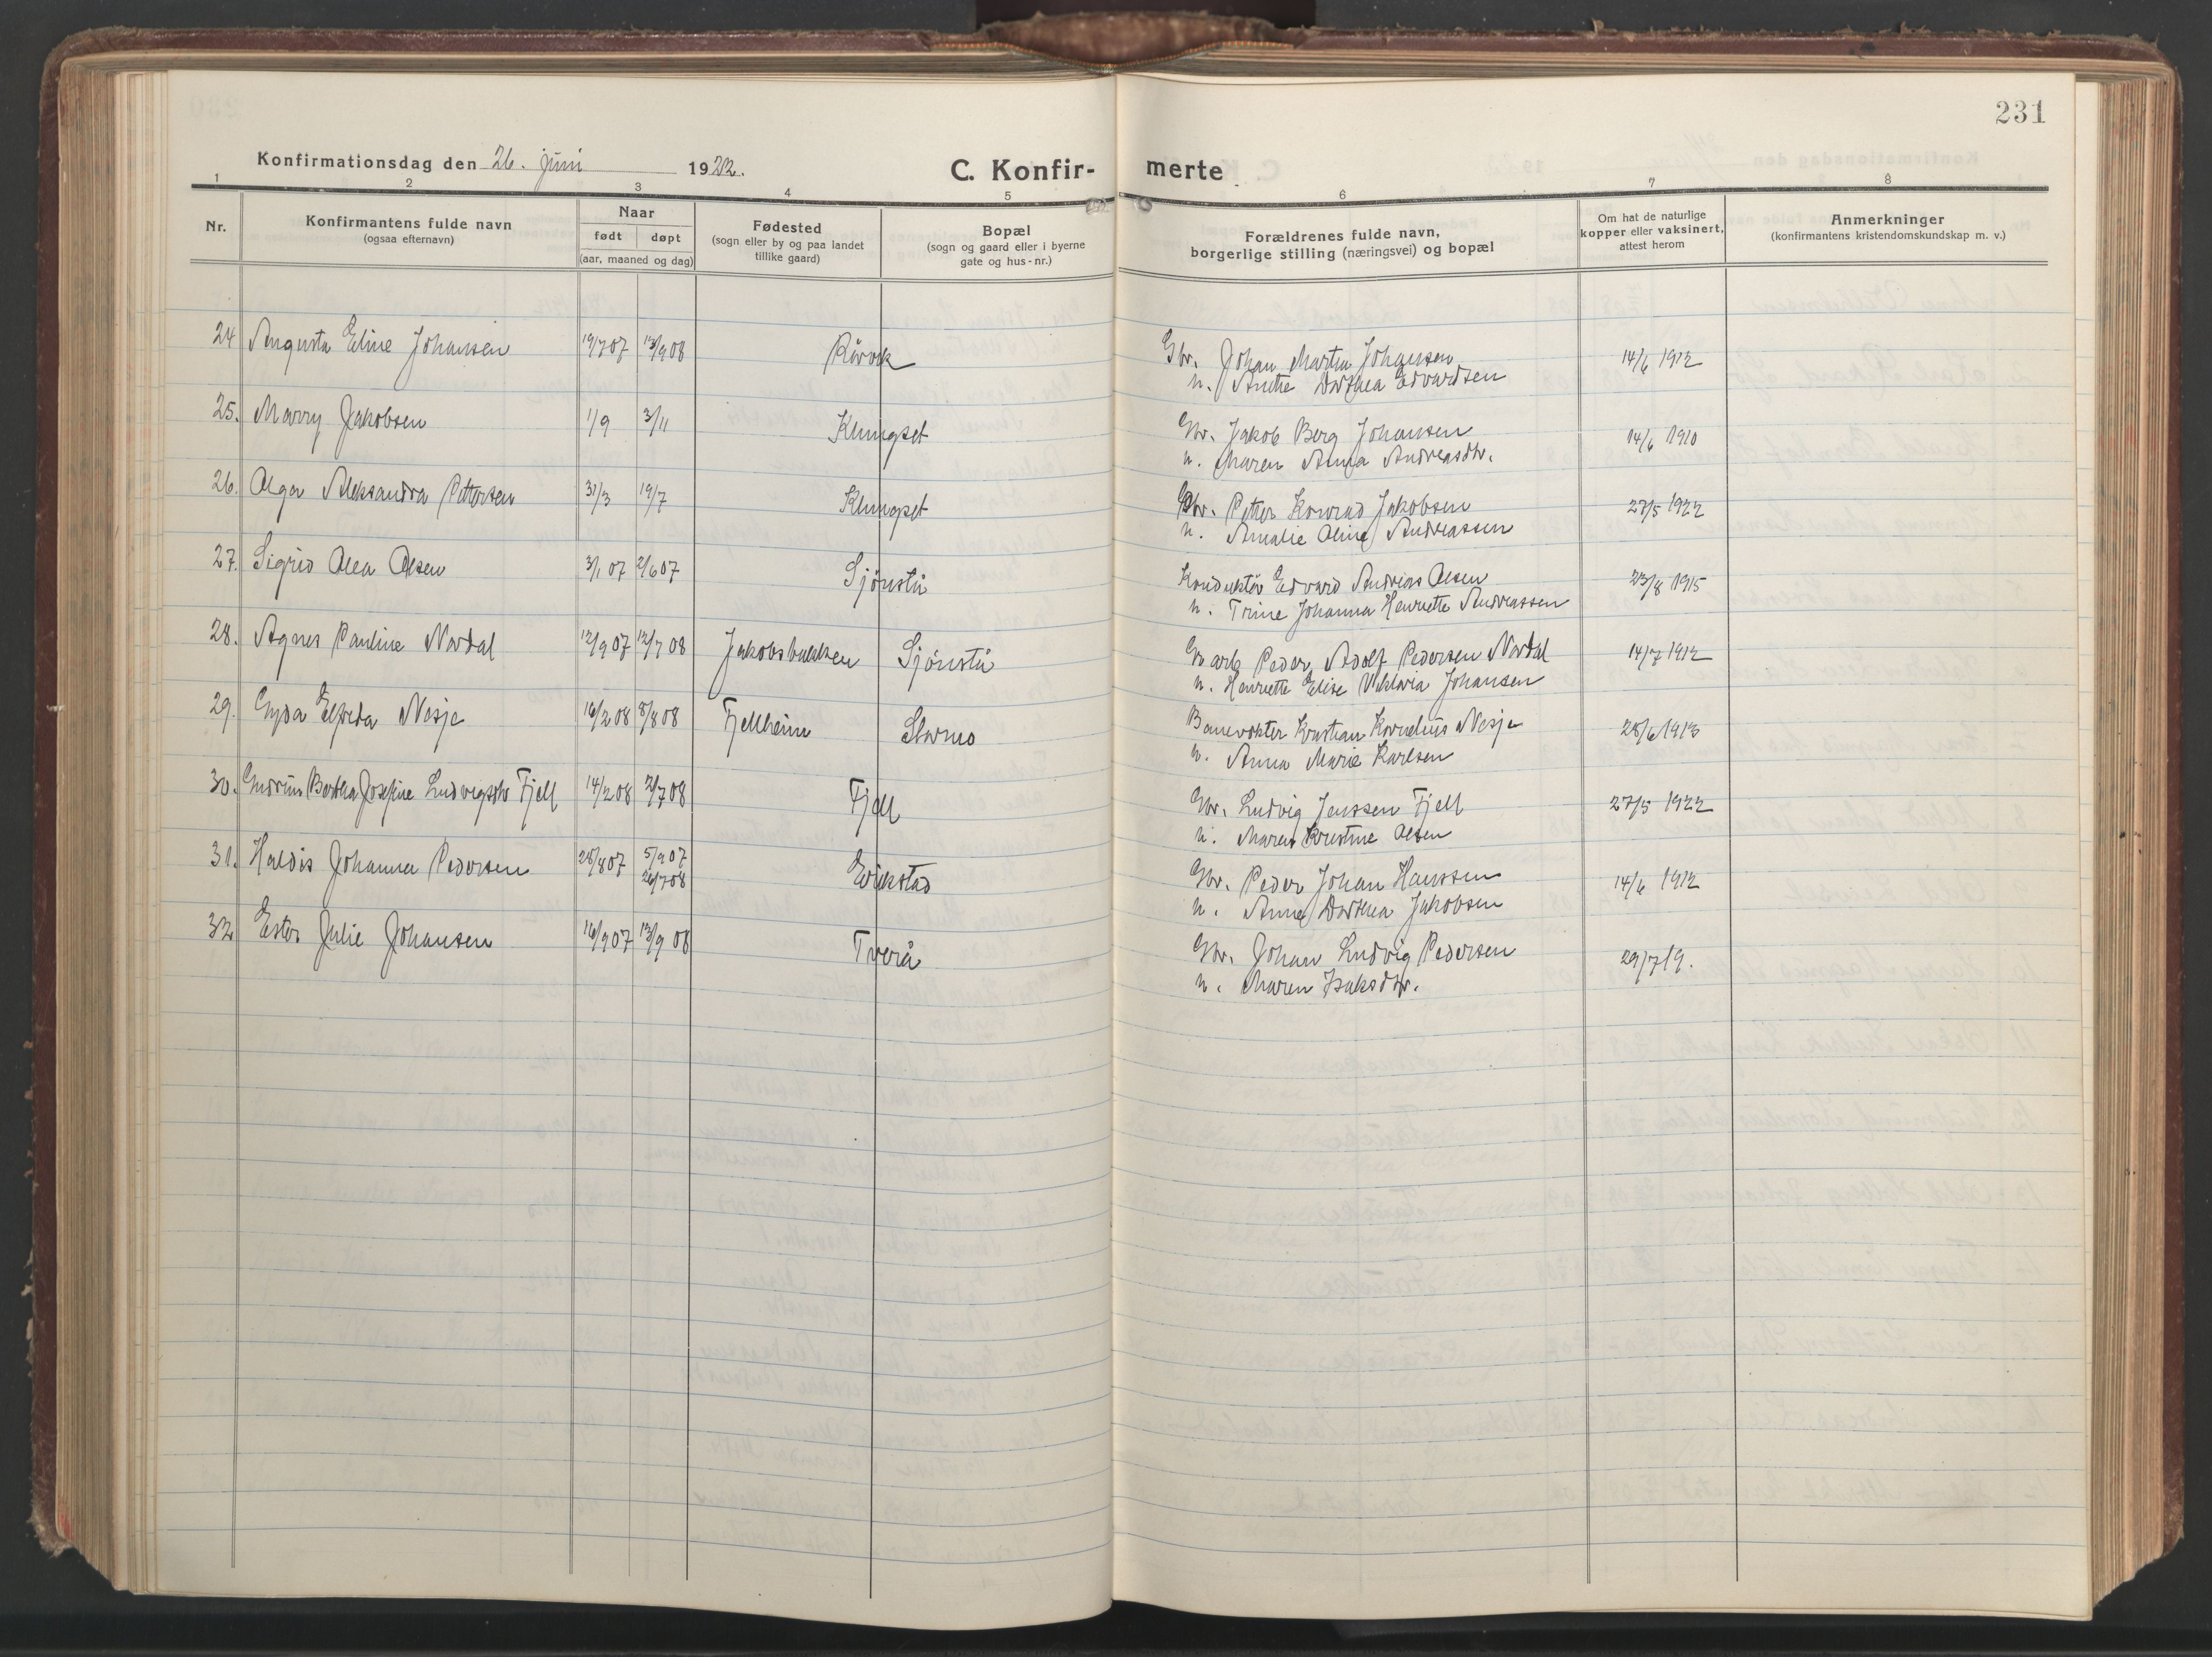 231
Konfirmationsdag den 26. juni 1922.
C. Konfir- merte
1 2 3 4 5 6 7 8
Nr.
Konfirmantens fulde navn
(ogsaa efternavn)
Naar
født døpt
(aar, maaned og dag)
Fødested
(sogn eller by og paa landet
tillike gaard)
Bopæl
(sogn og gaard eller i byerne
gate og hus-nr.)
Forældrenes fulde navn,
borgerlige stilling (næringsvei) og bopæl
Om hat de naturlige
kopper eller vaksinert,
attest herom
Anmerkninger
(konfirmantens kristendomskundskap m. v.)
24 Augusta Eline Johansen 19/7 07 13/9 08 Rørvik Gbr. Johan Martin Johansen 14/6 1912
u. Anette Dorthea Edvardsen
25. Marry Jakobsen 1/9 3/11 Klungset Gbr. Jakob Berg Johansen 14/6 1910
u. Maren Anna Andreasdtr.
26. Olga Aleksandra Pettersen 31/3 19/7 Klungset Gbr. Petter Konrad Jakobsen 27/5 1922
u. Amalie Oline Andreassen
27. Sigrid Olea Olsen 3/1 07 2/6 07 Sjønstå Konduktør Edvard Andreas Olsen 23/8 1915
u. Trine Johanna Henriette Andreassen
28. Agnes Pauline Nordal 12/9 07 12/7 08 Jakobsbakken Sjønstå Gr.arb. Peder Adolf Pedersen Nordal 14/7 1912
u. Henriette Elise Viktoria Johansen
29. Gyda Elfrida Nesje 16/2 08 8/8 08 Fjellheim Stormo Banevokter Kristian Kornelius Nesje 28/6 1913
u. Anna Marie Karlsen
30. Gudrun Borthea Josefine Ludvigsdtr Fjell 14/2 08 2/7 08 Fjell Gbr. Ludvig Janssen Fjell 27/5 1922
u. Maren Kristine Olsen
31. Haldis Johanna Pedersen 28/8 07 5/9 07 Erikstad Gbr. Peder Johan Hanssen 14/6 1912
26/7 08 u. Anne Dorthea Jakobsen
32 Ester Julie Johansen 16/9 07 13/9 08 Tverå Gbr. Johan Ludvig Pedersen 29/7 19.
u. Maren Isaksdtr.